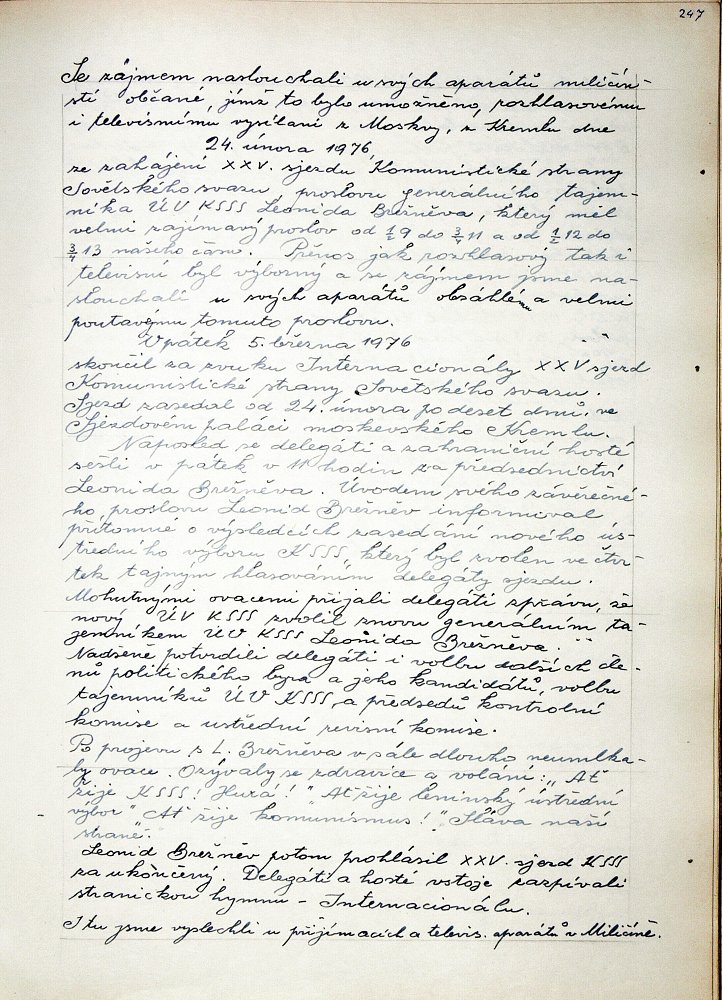 247
Se zájmem naslouchali u svých aparátů miličín-
stí občané, jimž to bylo umožněno, rozhlasovému
i televisnímu vysílání z Moskvy, z Kremlu dne
24. února 1976,
ze zahájení XXV. sjezdu Komunistické strany
Sovětského svazu proslovu generálního tajem-
níka ÚV KSSS Leonida Brežněva, který měl
velmi zajímavý proslov od ½ 9 do ¾ 11 a od ½ 12 do
¾ 13 našeho času. Přenos jak rozhlasový tak i
televisní byl výborný a se zájmem jsme na-
slouchali u svých aparátů obsáhlému a velmi
poutavému tomuto proslovu.
V pátek 5. března 1976
skončil za zvuku Internacionály XXV sjezd
Komunistické strany Sovětského svazu.
Sjezd zasedal od 24. února po deset dnů ve
Sjezdovém paláci moskevského Kremlu.
Naposled se delegáti a zahraniční hosté
sešli v pátek v 11 hodin za předsednictví
Leonida Brežněva. Úvodem svého závěrečné-
ho proslovu Leonid Brežněv informoval
přítomné o výsledcích zasedání nového ús-
tředního výboru KSSS, který byl zvolen ve čtvr-
tek tajným hlasováním delegáty sjezdu.
Mohutnými ovacemi přijali delegáti zprávu, že
nový ÚV KSSS zvolil znovu generálním ta-
jemníkem ÚV KSSS Leonida Brežněva.
Nadšeně potvrdili delegáti i volbu dalších čle-
nů politického byra a jeho kandidátů, volbu
tajemníků ÚV KSSS, a předsedů kontrolní
komise a ustřední revisní komise.
Po projevu s L. Brežněva v sále dlouho neumlka-
ly ovace. Ozývaly se zdravice a volání: „Ať
žije KSSS! Hurá!" „Ať žije leninský ústřední
výbor" „Ať žije komunismus!" „Sláva naší
straně".
Leonid Brežněv potom prohlásil XXV. sjezd KSSS
za ukončený. Delegáti a hosté vstoje zazpívali
stranickou hymnu - Internacionálu.
I tu jsme vyslechli u přijímacích a televis. aparátů v Miličíně.